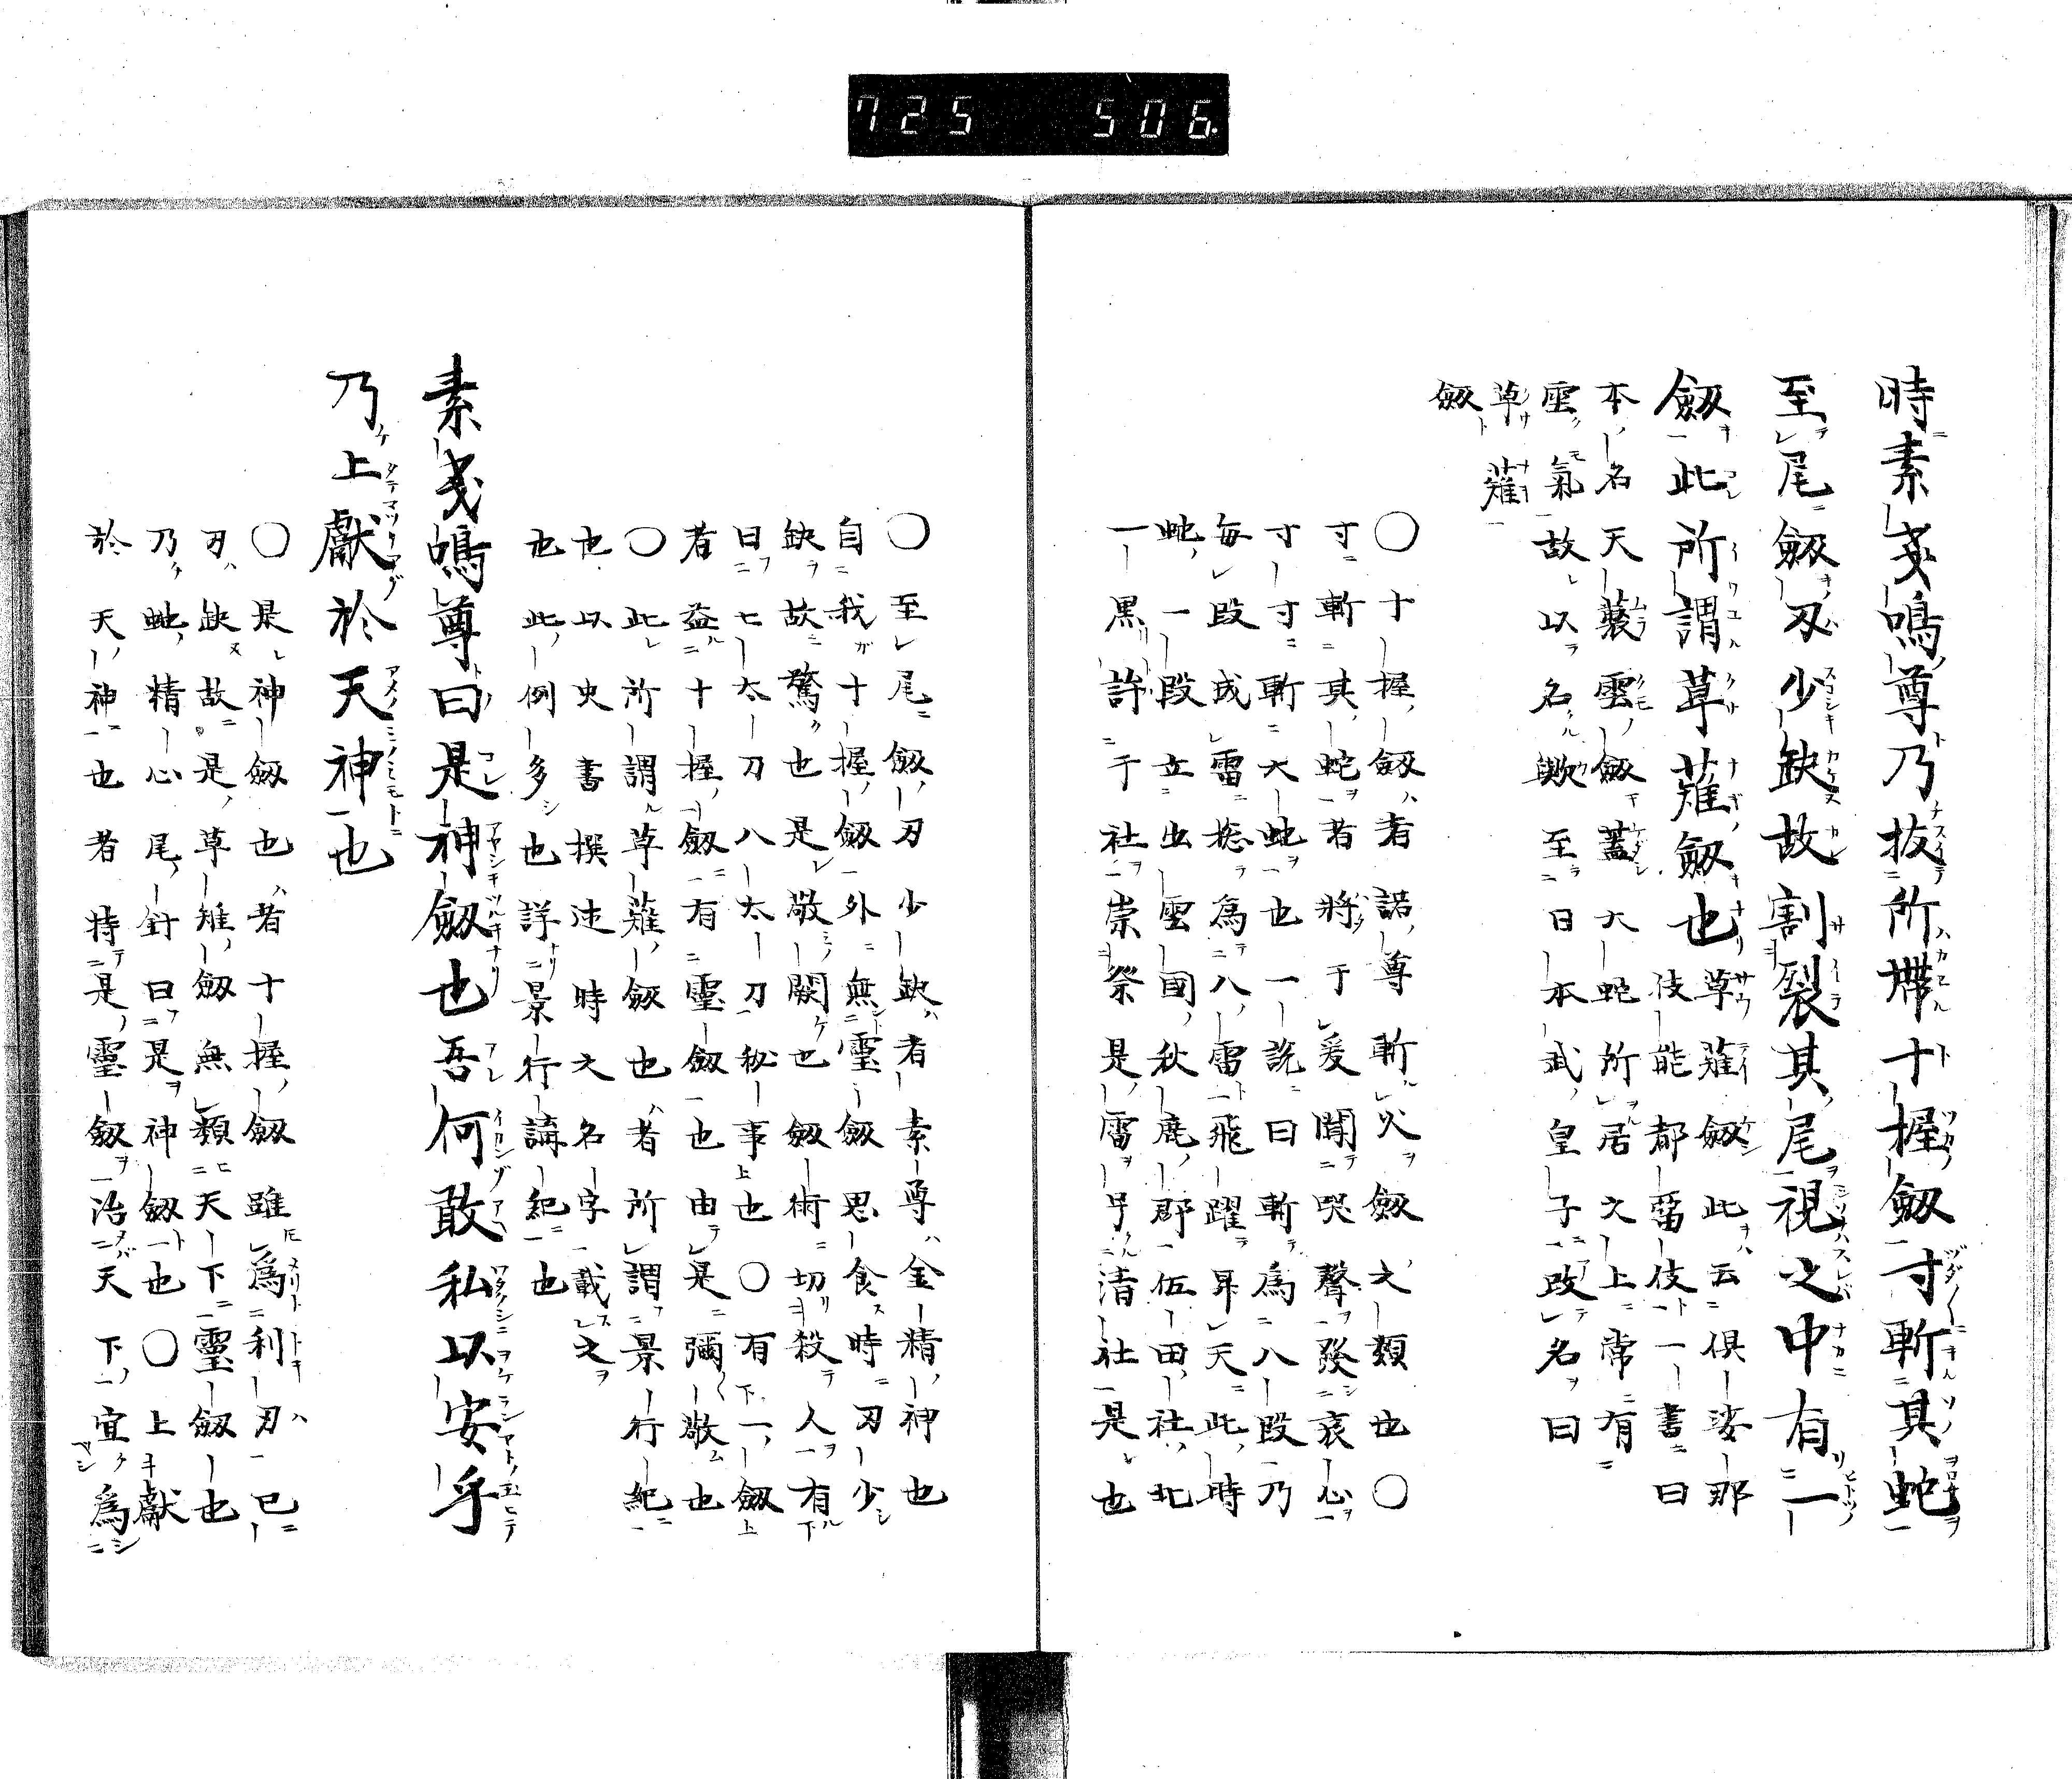 725 506
時素戔嗚尊乃拔所帶十握劔寸斬其蛇
至尾劔刃少缺故割裂其尾視之中有一
劔此所謂草薙劔也
草薙劔此云倶娑那
伎能都留伎一書曰
本名天藂雲劔蓋大蛇所居之上常有
雲氣故以名歟至日本武皇子改名曰
草薙
劔
〇十握劔者諾尊斬火劔之類也〇
寸斬其蛇者將于爰聞哭聲發哀心
寸寸斬大蛇也一說曰斬為八段乃
每段成雷揔為八雷飛躍昇天此時
蛇一段立出雲國秋鹿郡伍田社北
一黒許于社崇祭是雷号清社是也
〇至尾劔刃少缺者素尊金精神也
自我十握劔外無靈劔思食時刃少
缺故驚也是敬闕也劔術切殺人有
曰七太刀八太刀秘事也〇有一劔
者益十握劔有靈劔也由是彌敬也
〇此所謂草薙劔也者所謂景行紀
也以史書撰述時之名字載之
也此例多也詳景行講紀也
素戔嗚尊曰是神劔也吾何敢私以安乎
乃上獻於天神也
〇是神劔也者十握劔雖為利刃已
刃缺故是草薙劔無類天下靈劔也
乃蛇精心尾針曰是神劔也〇上獻
於天神也者特是靈劔治天下宜為